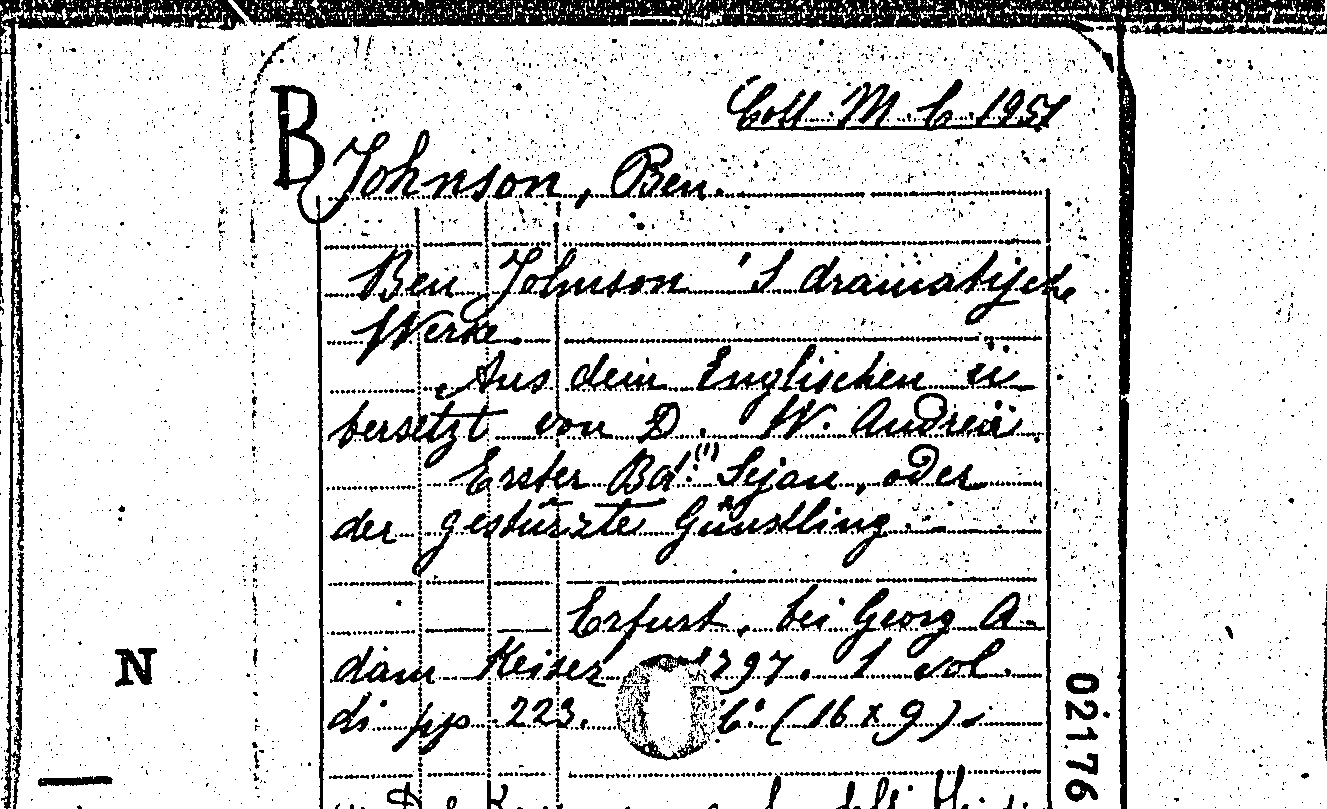 B
Coll. M. C. 1951
Johnson, Ben.
Ben Johnson 'S dramatische
Werke.
Aus dem Englischen ü-
bersetzt von D. W. Andreä
Erster Bd.(1) Sejan, oder
der gestürzte Günstling.
Erfurt, bei Georg A-
dam Keiser 1797. 1 vol.
di pp. 223. (16 x 9).
N
02176